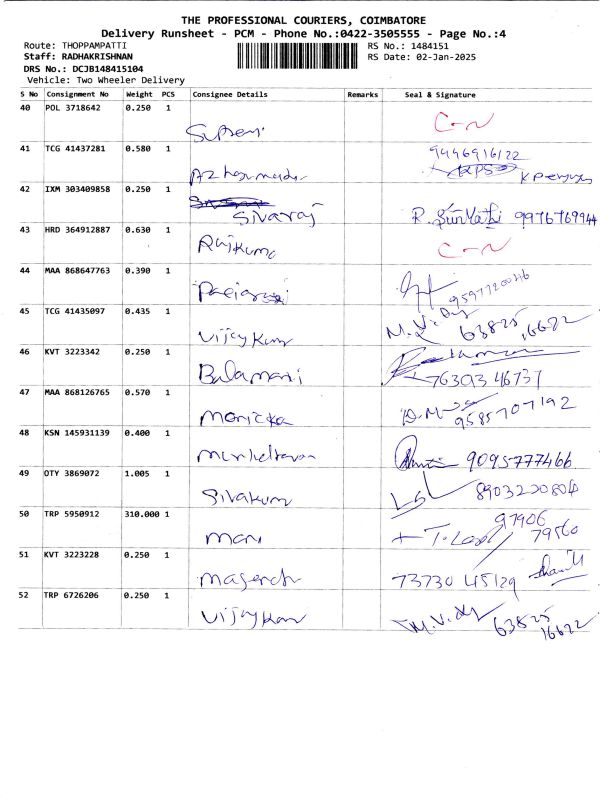 THE PROFESSIONAL COURIERS, COIMBATORE
Delivery Runsheet - PCM - Phone No.:0422-3505555 - Page No.:4
Route: THOPPAMPATTI
Staff: RADHAKRISHNAN
DRS No.: DCJB148415104
Vehicle: Two Wheeler Delivery
RS No.: 1484151
RS Date: 02-Jan-2025
S No Consignment No Weight PCS Consignee Details Remarks Seal & Signature
40 POL 3718642 0.250 1 C-N
41 TCG 41437281 0.580 1 9446916122
42 IXM 303409858 0.250 1 Sivaraj 9976769944
43 HRD 364912887 0.630 1 Rajkumar C-N
44 MAA 868647763 0.390 1 9597720046
45 TCG 41435097 0.435 1 Vijaykum 63825 16622
46 KVT 3223342 0.250 1 Balamani 76393 46737
47 MAA 868126765 0.570 1 Manicka 9585707192
48 KSN 145931139 0.400 1 9095777466
49 OTY 3869072 1.005 1 Sivakum 8903220804
50 TRP 5950912 310.000 1 Mani 97906 79560
51 KVT 3223228 0.250 1 73730 45129
52 TRP 6726206 0.250 1 Vijaykum 63825 16622